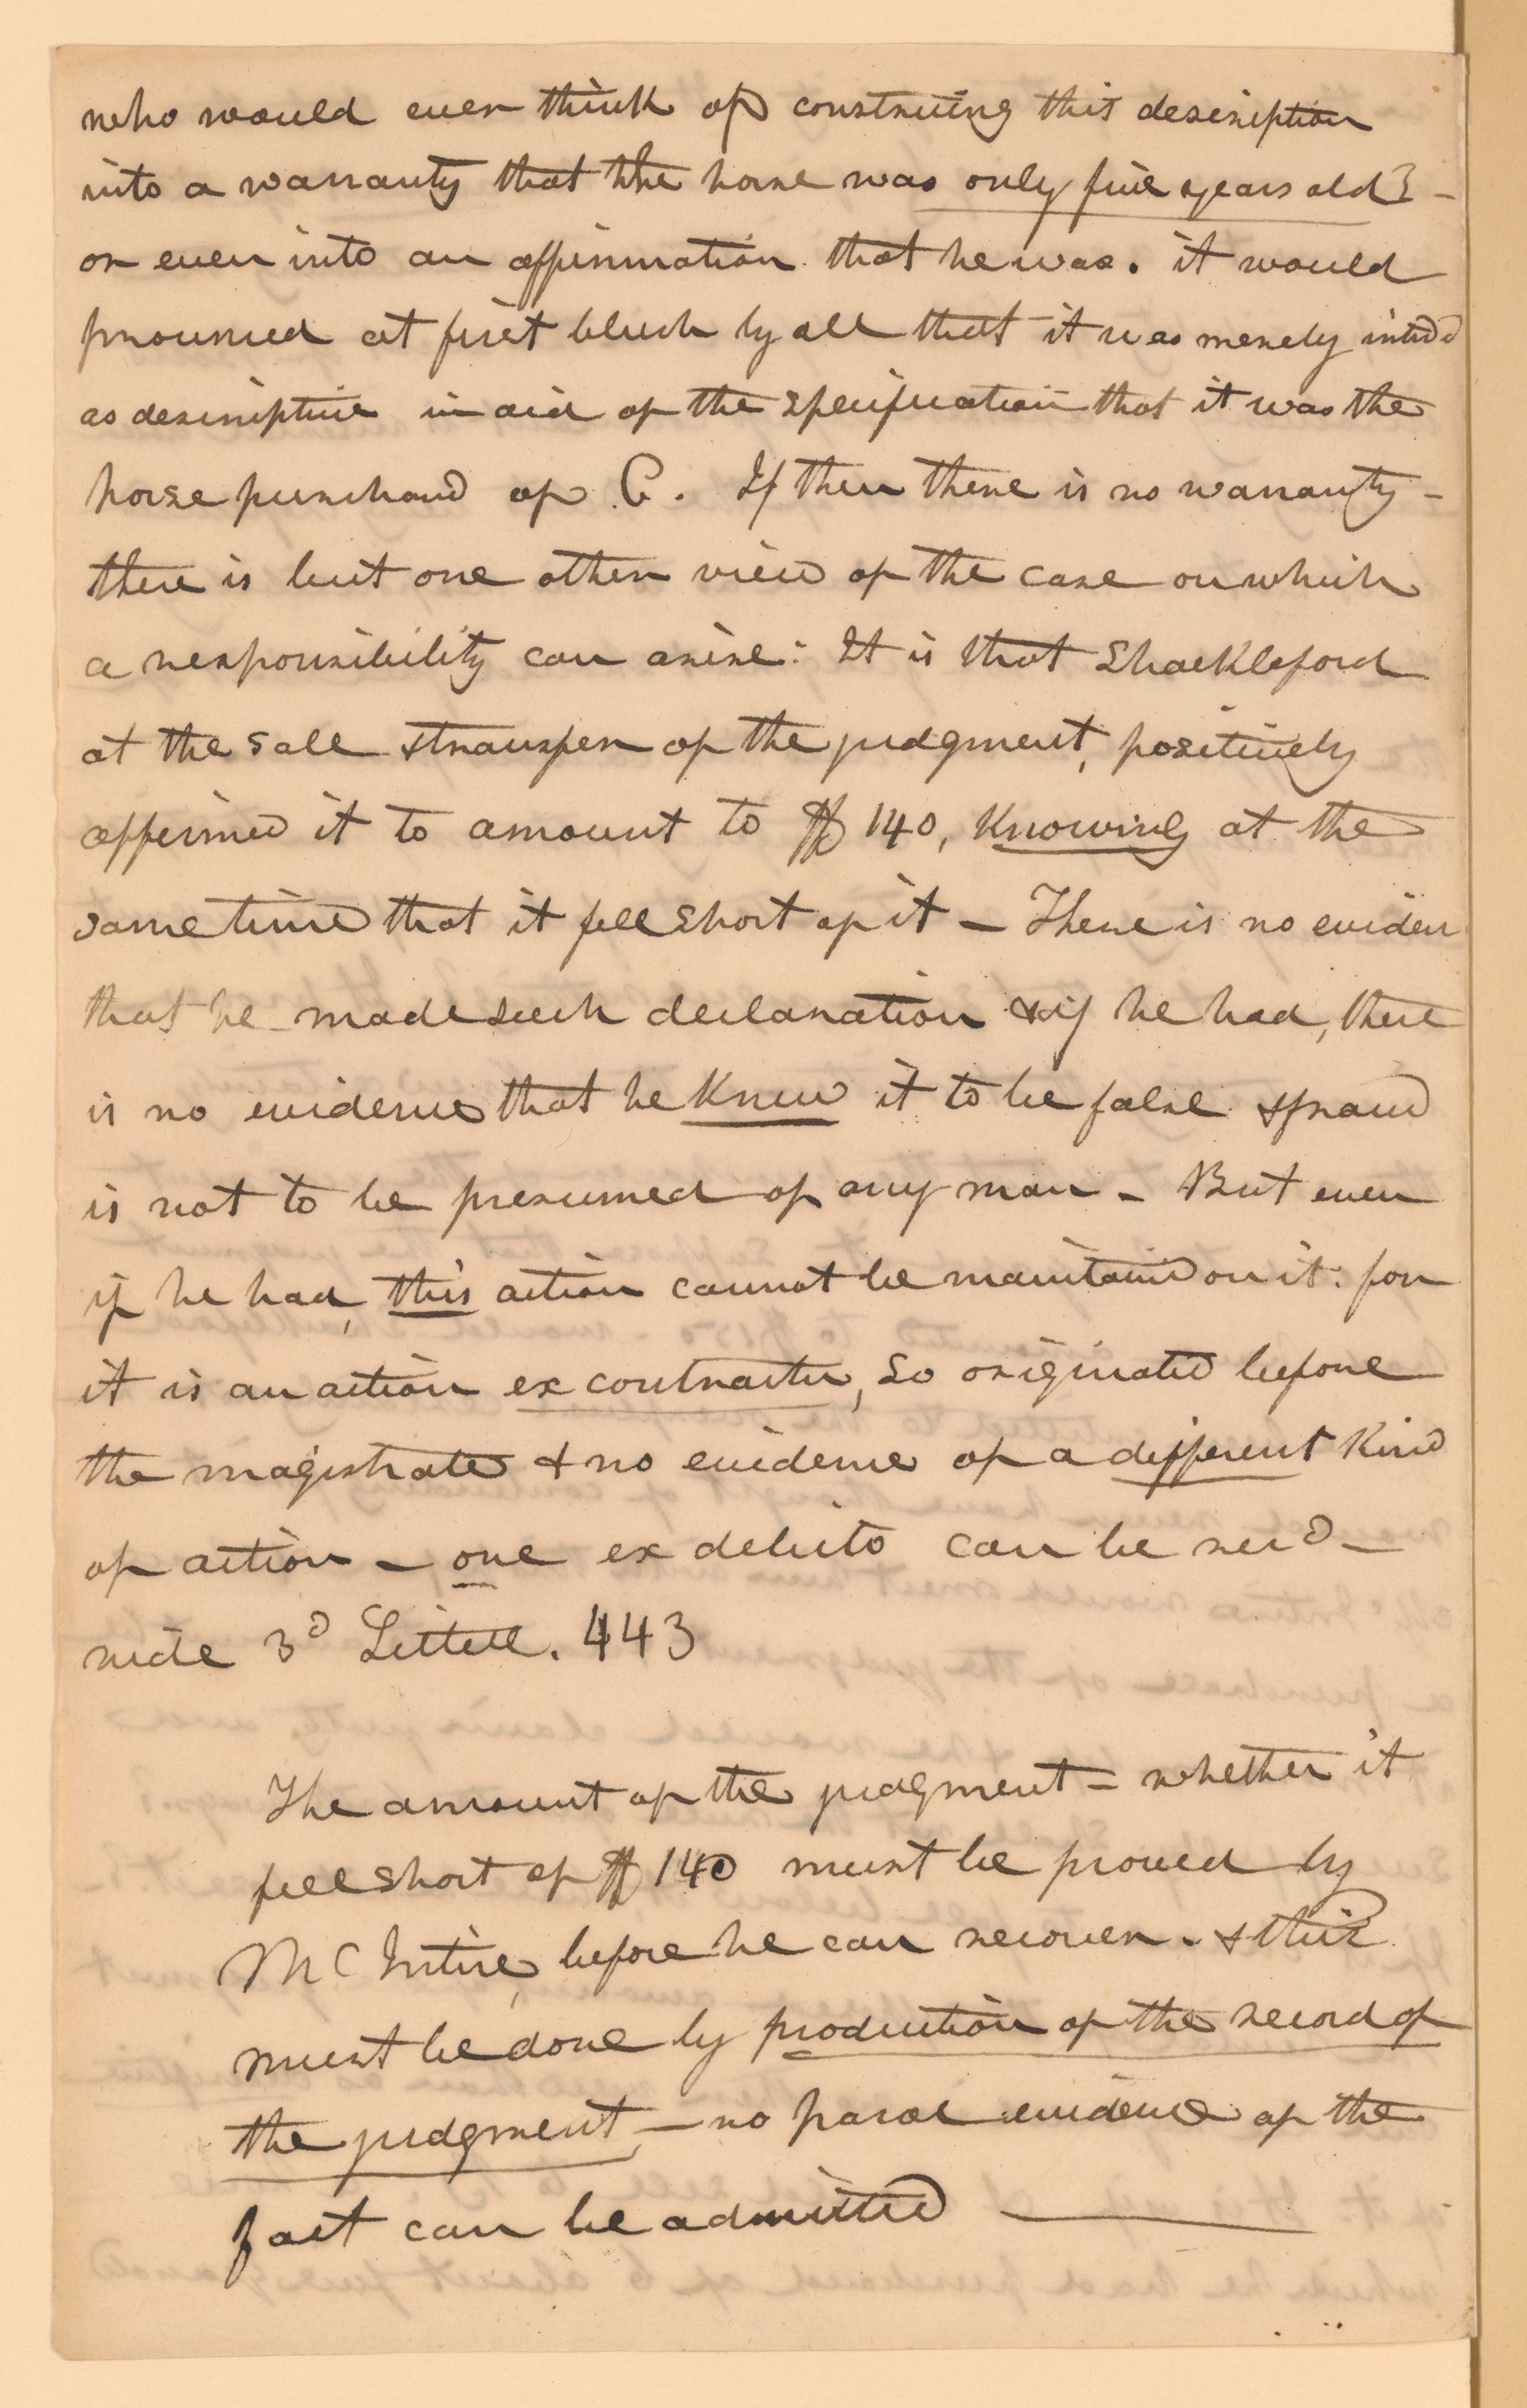 who would ever think of construing this description
into a warranty that the horse was only five years old? -
or even into an affirmation that he was. it would
pronounced at first blush by all that it was merely intdd
as descriptive in aid of the specification that it was the
horse purchasd of C. If then there is no warranty -
there is but one other view of the case on which
a responsibility can arise: It is that Shackleford
at the sale & transfer of the judgment, positively
affirmed it to amount to $140, Knowing at the
same time that it fell short of it - There is no eviden
that he made such declaration & if he had, there
is no evidence that he Knew it to be false & fraud
is not to be presumed of any man - But even
if he had, this action cannot be maintaind on it: for
it is an action ex contractu, so originated before
the magistrate & no evidence of a different Kind
of action - one ex delicto can be recd -
vide 3d Littell. 443
The amount of the judgment - whether it
fell short of $140 must be proved by
McIntire, before he can recover. & this
must be done by production of the record of
the judgment, - no parol evidence of the
fact can be admitted